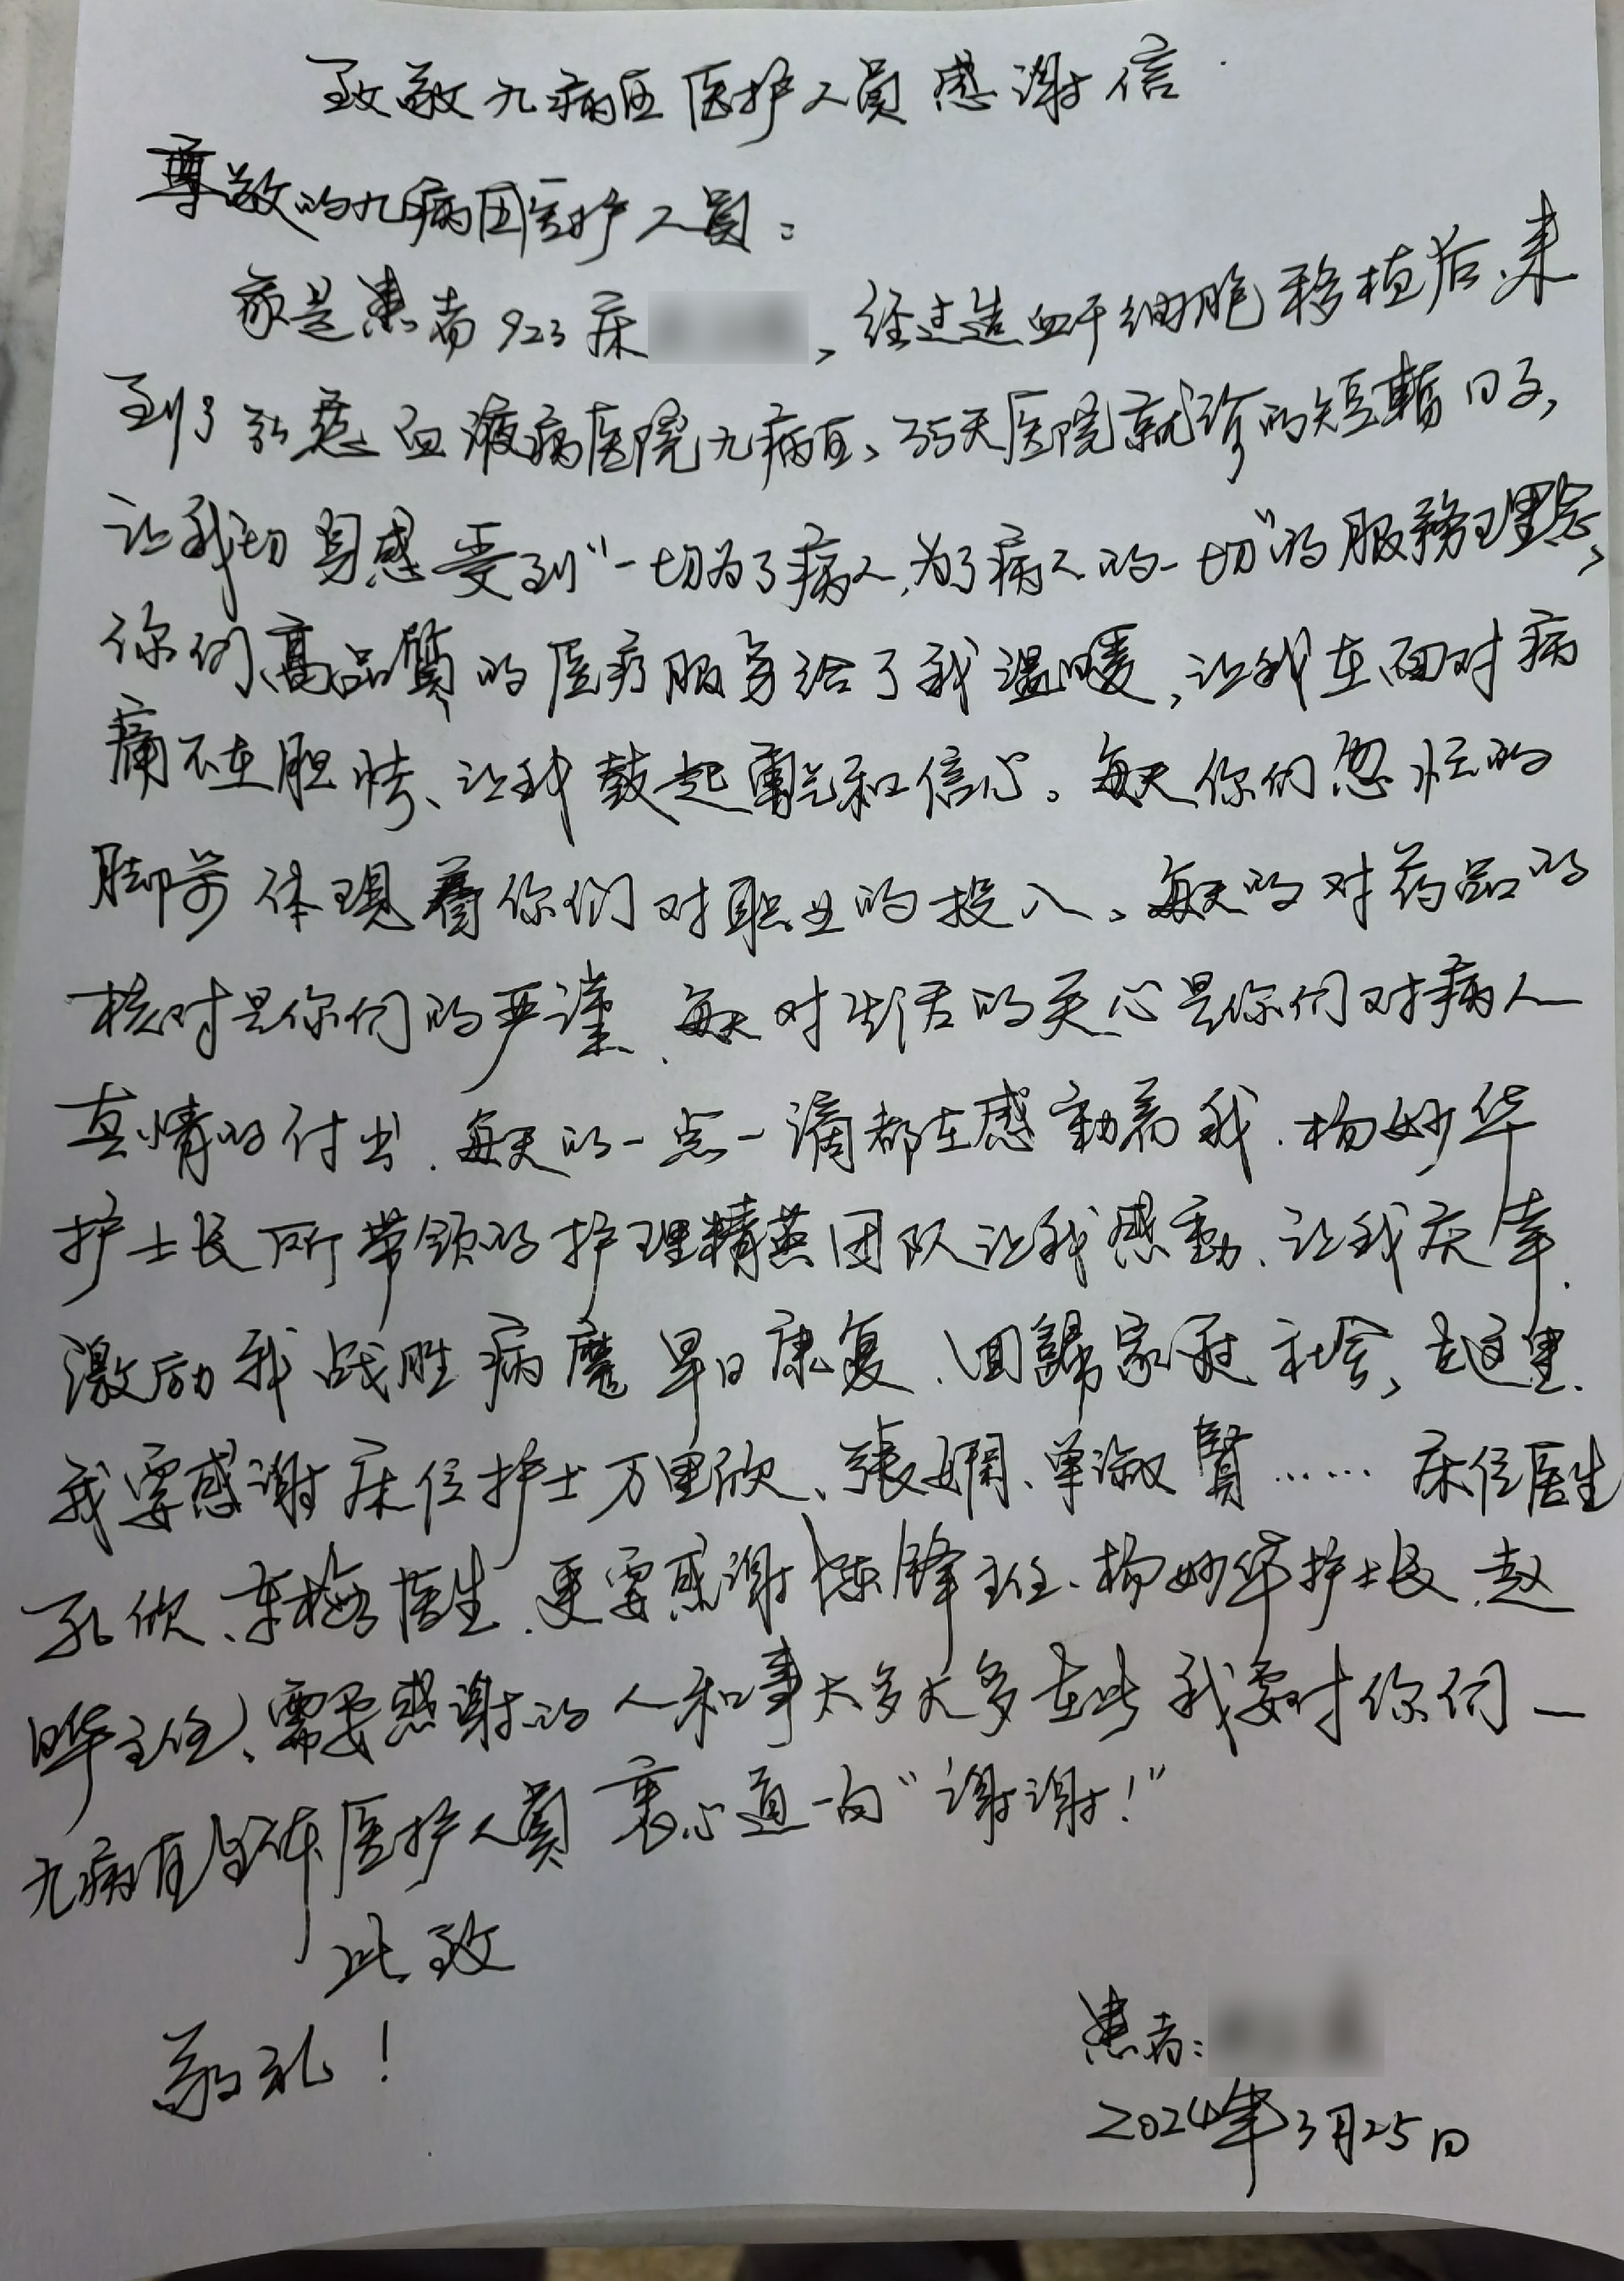 致敬九病区医护人员感谢信
尊敬的九病区医护人员：
我是患者923床，经过造血干细胞移植后、来
到了弘慈血液病医院九病区、35天医院就诊的短暂日子，
让我切身感受到“一切为了病人，为了病人的一切”的服務理念，
你们高品質的医疗服务给了我温暖，让我在面对病
痛不在胆怯、让我鼓起勇气和信心。每天你们忽忙的
脚步体现着你们对职业的投入。每天的对药品的
核对是你们的严谨、每天对生活的关心是你们对病人
真情的付出、每天的一点一滴都在感動着我．杨妙华
护士长所带领的护理精英团队让我感動、让我庆幸．
激励我战胜病魔早日康复、回歸家庭社会，在这里．
我要感谢床位护士万里欣、張娴、单淑賢……床位医生
孔欣、李梅医生．更要感谢陈锋主任、杨妙华护士长、赵
晔主任、需要感谢的人和事太多太多在此我要对你们一
九病区全体医护人員衷心道一句“谢谢！”
此致
敬礼！
患者：
2024年3月25日